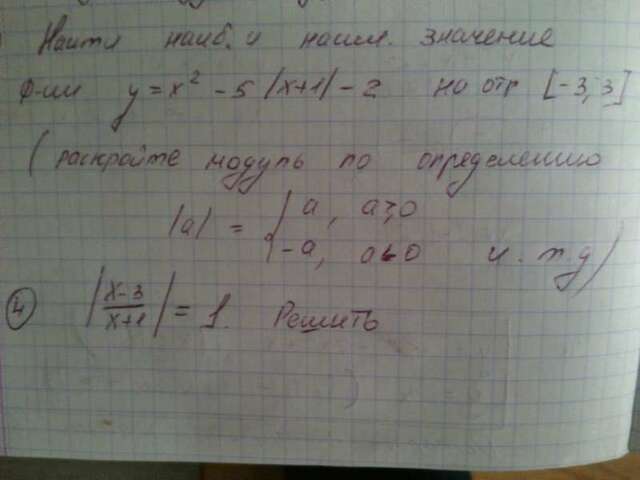 Найти наиб. и наим. значение
ф-ии y = x² - 5 |x+1| - 2 на отр [-3; 3]
(раскройте модуль по определению
|a| = { a, a≥0
-a, a<0 и т.д)
④ |x-3/x+1| = 1. Решить